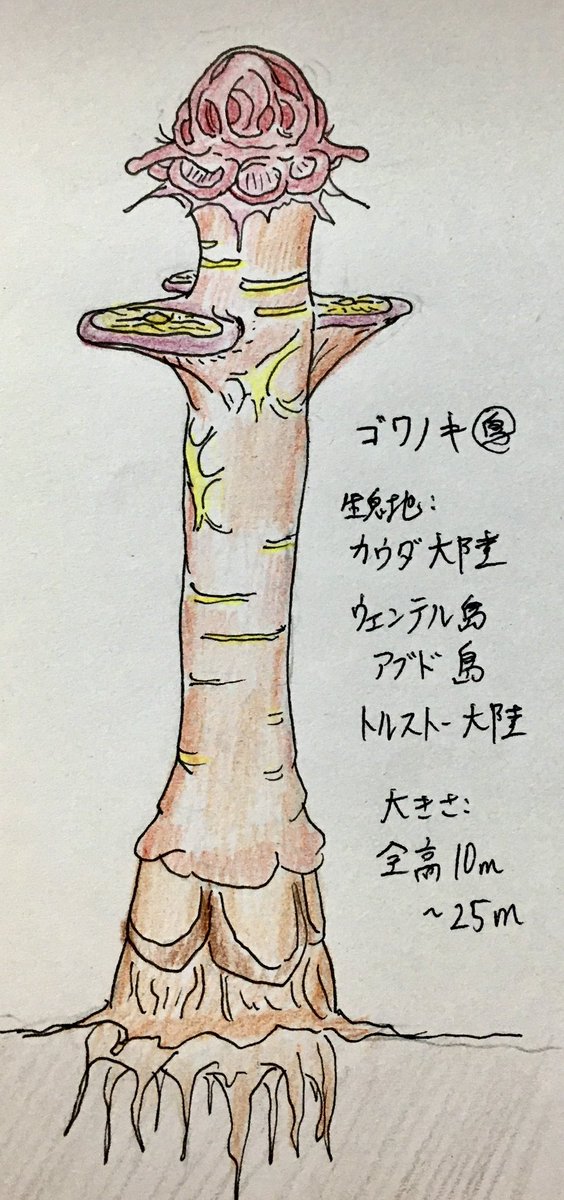 ゴワノキ
生息地:
カウダ大陸
ウェンテル島
アブド島
トルストー大陸
大きさ:
全高10m
~25m